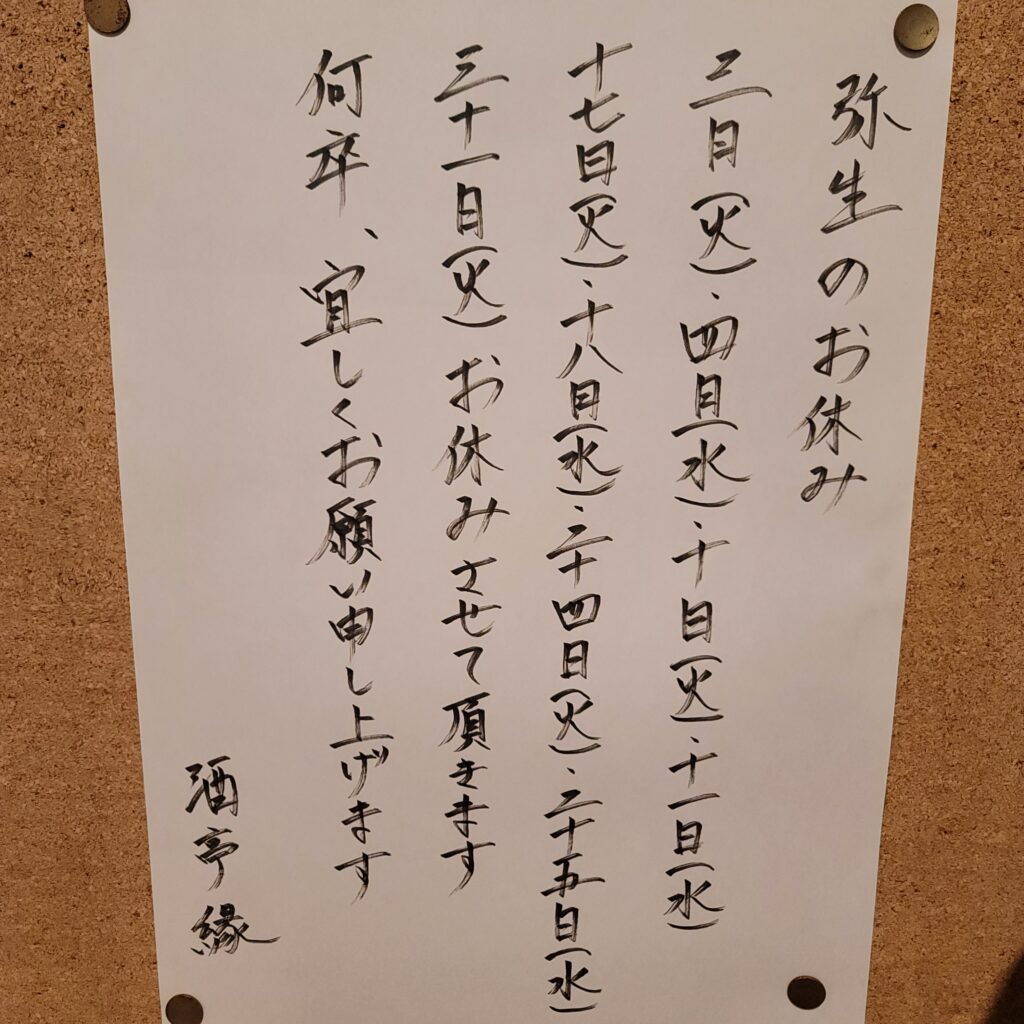 弥生のお休み
三日(火)、四日(水)、十日(火)、十一日(水)
十七日(火)、十八日(水)、二十四日(火)、二十五日(水)
三十一日(火)お休みさせて頂きます
何卒、宜しくお願い申し上げます
酒亭 縁